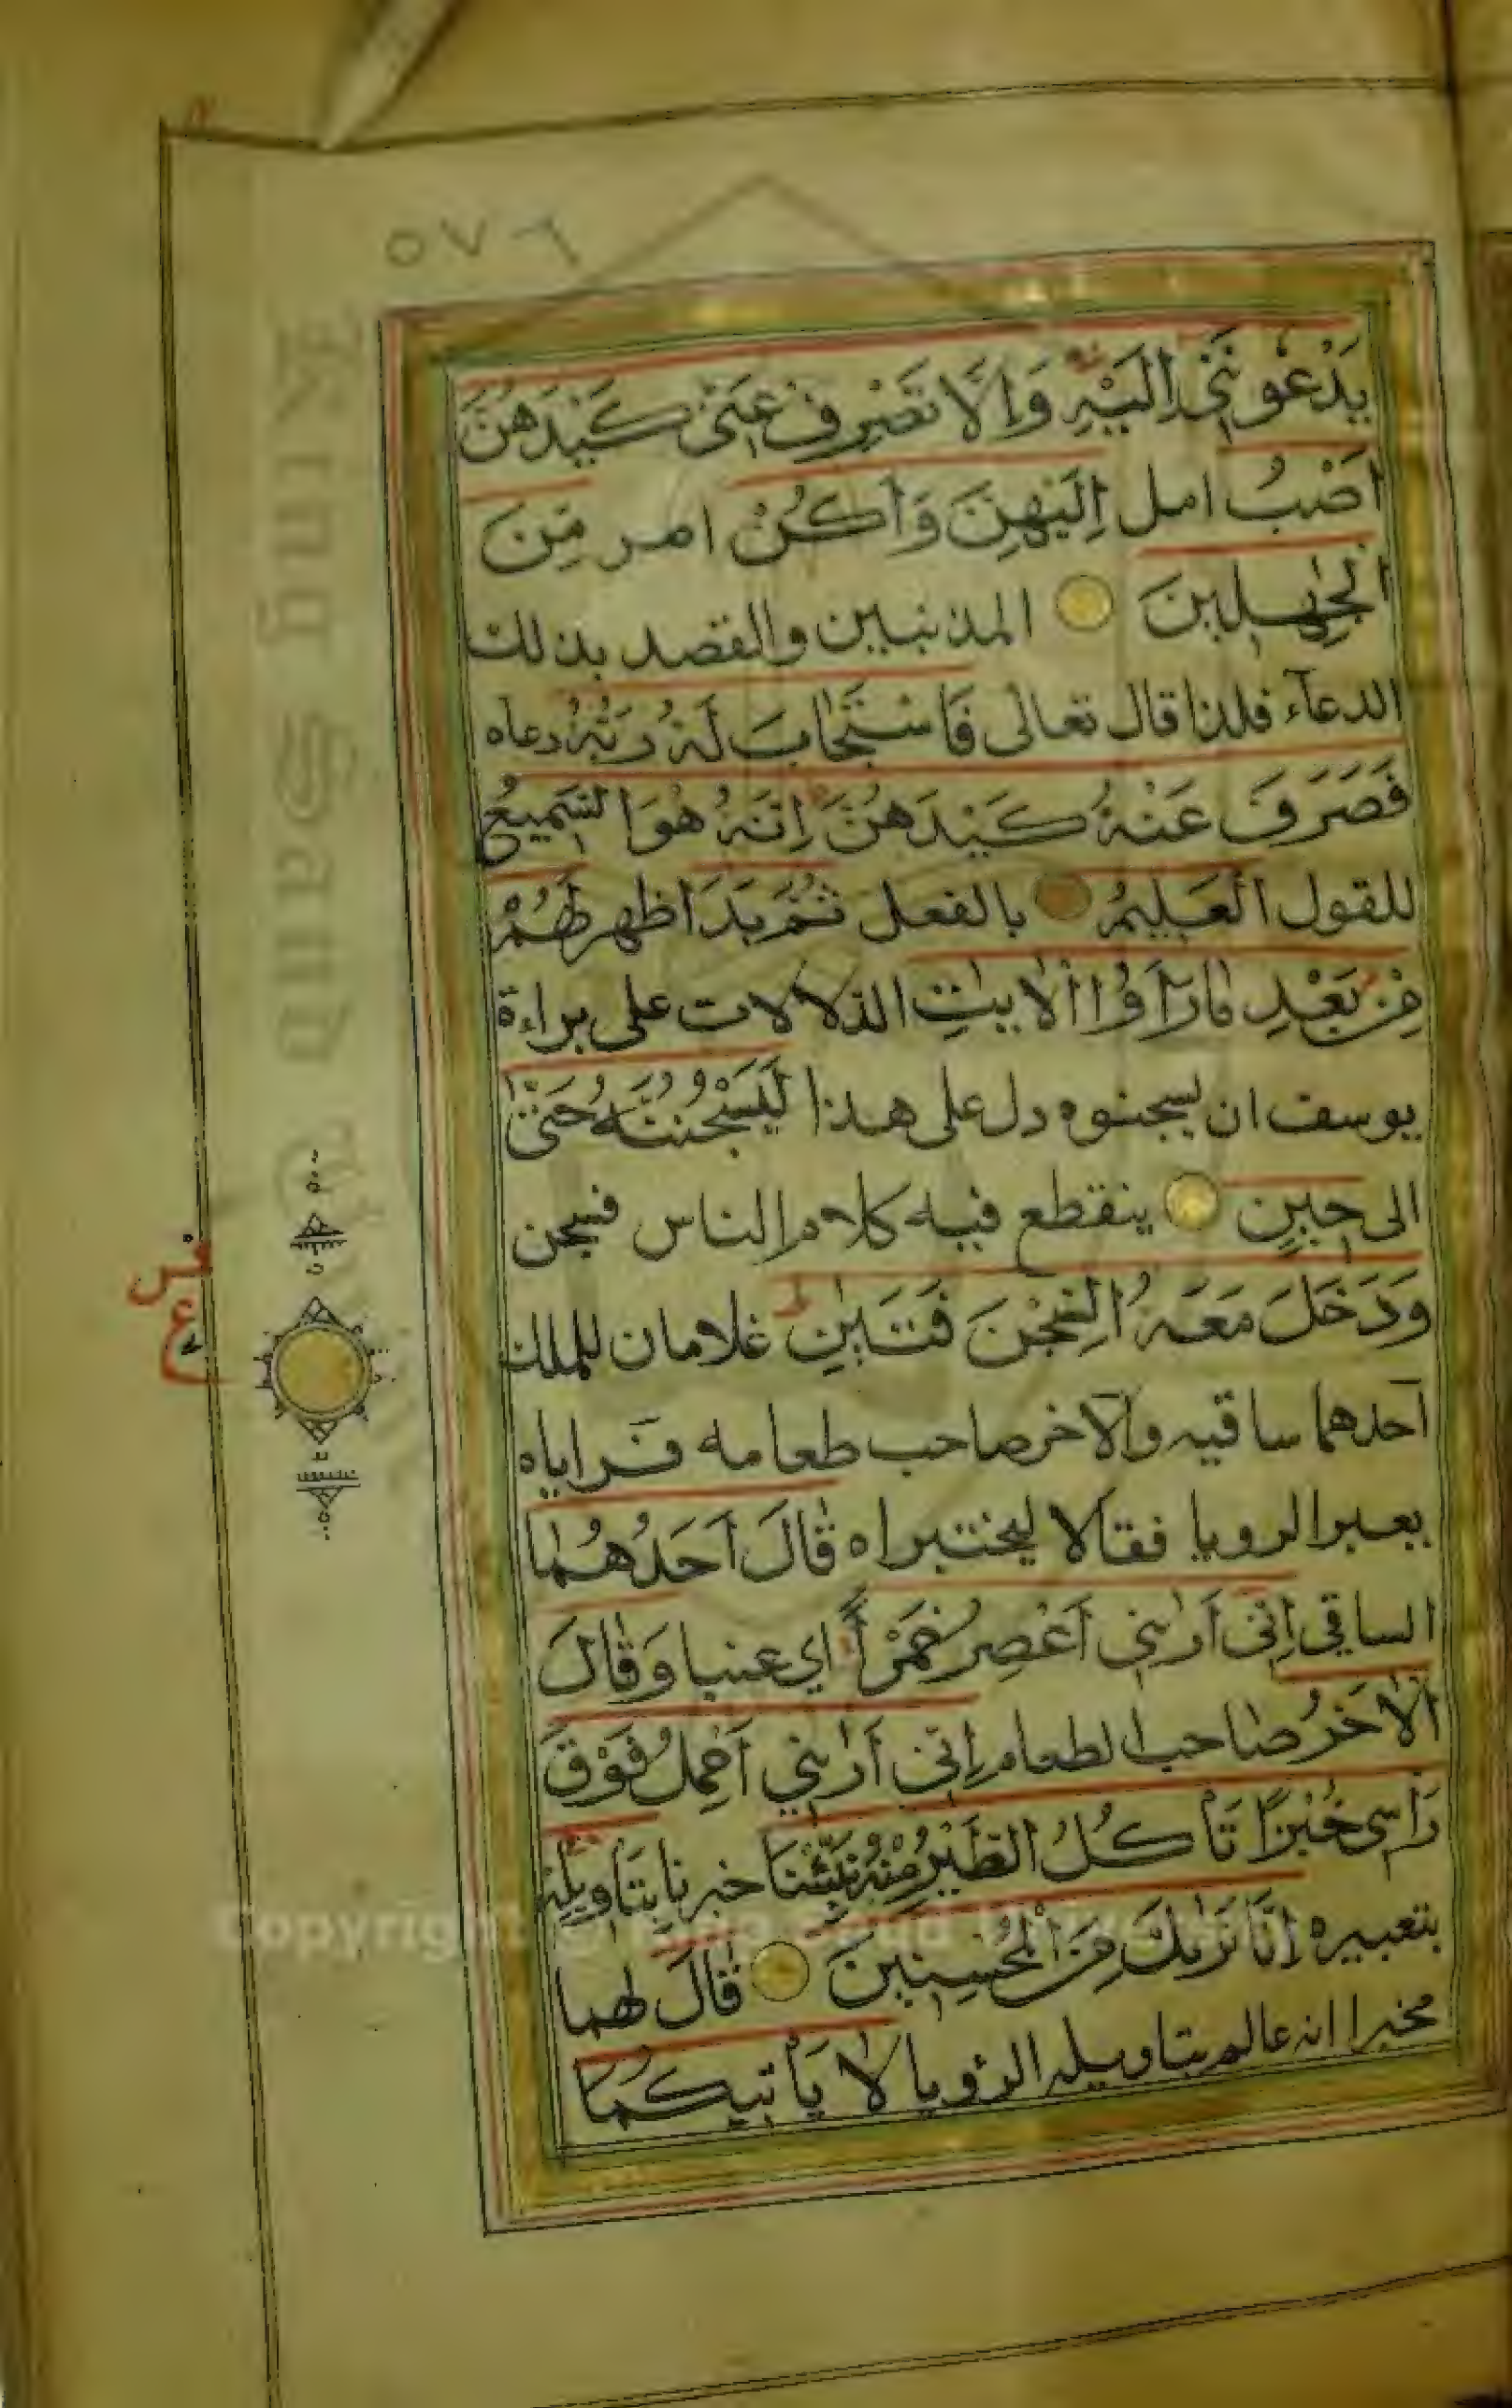 ٥٧٦
يَدْعُونَنِي إِلَيْهِ وَإِلَّا تَصْرِفْ عَنِّي كَيْدَهُنَّ
أَصْبُ امل إِلَيْهِنَّ وَأَكُنْ اصر مِّنَ
الْجٰهِلِينَ المذنبين والقصد بذلك
الدعآء فلذا قال تعالى فَاسْتَجَابَ لَهُ رَبُّهُ دعاه
فَصَرَفَ عَنْهُ كَيْدَهُنَّ إِنَّهُ هُوَ السَّمِيعُ
للقول الْعَلِيمُ بالفعل ثُمَّ بَدَا ظهر لَهُمْ
مِنْ بَعْدِ مَا رَأَوُا الْاٰيٰتِ الدلالات على براءة
يوسف ان يسجنوه دل على هذا لَيَسْجُنُنَّهُ حَتّٰى
الى حِينٍ ينقطع فيه كلام الناس فسجن
وَدَخَلَ مَعَهُ السِّجْنَ فَتَيٰنِ غلامان للملك
احدهما ساقيه والآخر صاحب طعامه فراياه
يعبر الرويا فقالا ليختبراه قَالَ أَحَدُهُمَا
الساقي إِنِّي أَرٰىنِي أَعْصِرُ خَمْرًا اي عنبا وَقَالَ
الْاٰخَرُ صاحب الطعام إِنِّي أَرٰىنِي أَحْمِلُ فَوْقَ
رَأْسِي خُبْزًا تَأْكُلُ الطَّيْرُ مِنْهُ نَبِّئْنَا خبرنا بِتَأْوِيلِهِ
بتعبيره إِنَّا نَرٰىكَ مِنَ الْمُحْسِنِينَ قَالَ لهما
مخبرا انه عالم بتاويله الرؤيا لَا يَأْتِيكُمَا
ع
King Saud University
Copyright © King Saud University